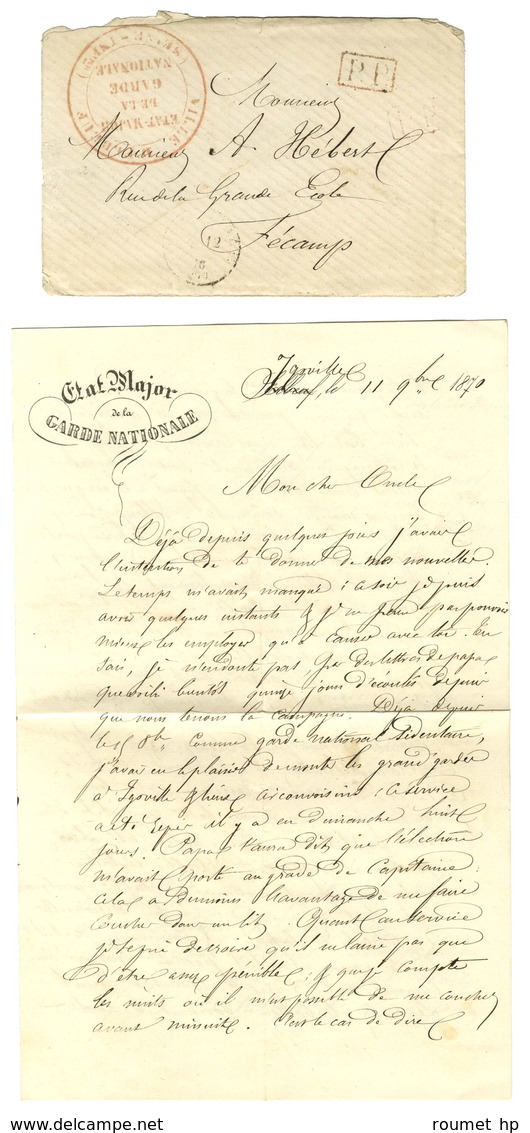 VILLE D'ELBEUF (SEINE-INFRE)
ETAT-MAJOR
DE LA
GARDE
NATIONALE
P.P.
Monsieur
Monsieur A Hébert
Rue de la Grande Ecole
Fécamp
12
Etat Major
de la
GARDE NATIONALE
Igoville
le 11 9bre 1870
Mon cher Oncle
Déjà depuis quelques jours j'avais
l'intention de te donner de mes nouvelles.
Le temps m'avait manqué : ce soir je puis
avoir quelques instants & je ne pense pas pouvoir
mieux les employer qu'à causer avec toi. Tu
sais, je n'en doute pas, par des lettres de papa
que voici bientôt quinze jours d'écoulés depuis
que nous tenons la campagne. Déjà depuis
le 8bre comme garde national sédentaire,
j'avais eu le plaisir de monter les grand'gardes
à Igoville & lieux circonvoisins ; ce service
a été il y a eu dimanche huit
jours. Papa t'aura dit que l'élection
m'avait porté au grade de Capitaine :
cela a du moins l'avantage de me faire
coucher dans un lit. Quant au service
je te prie de croire qu'il ne laisse pas que
d'être assez pénible : & que je compte
les nuits où il m'est possible de me coucher
avant minuit. C'est le cas de dire
roumet hp